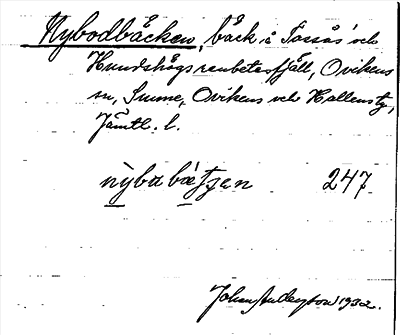 Nybodbäcken, bäck i Tossås och
Hundshögs renbetesfjäll, Ovikens
sn, Sunne, Ovikens och Hallens tg,
Jämtl. l.
nỳba bætjen 247
Johan Anderson 1932.